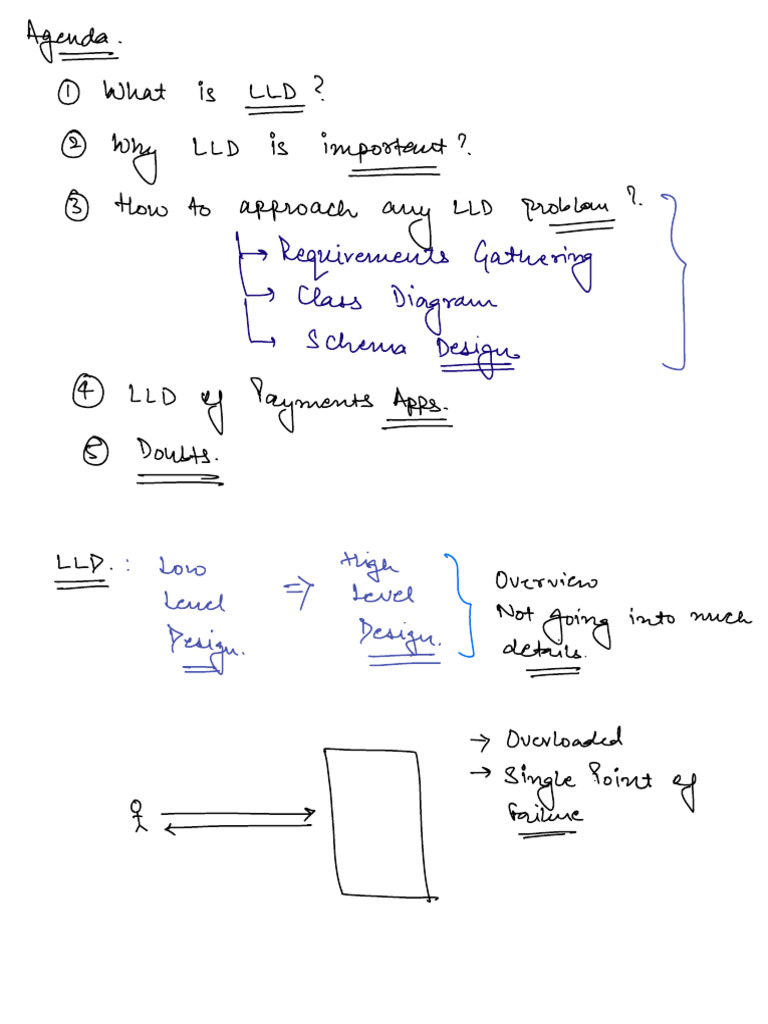 Agenda.
① What is LLD?
② Why LLD is important?
③ How to approach any LLD problem?
→ Requirements Gathering
→ Class Diagram
→ Schema Design.
④ LLD of Payments Apps.
⑤ Doubts.
LLD.: Low Level Design. ⇒ High Level Design.
Overview
Not going into much
details.
→ Overloaded
→ Single Point of
Failure